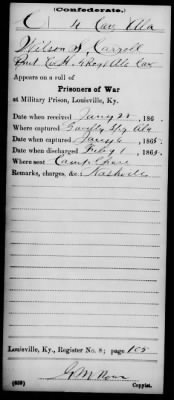 (Confederate.)
C 4 Cav Ala
Wilson S. Carroll
Co. 4 Regt Ala Cav
Appears on a roll of
Prisoners of War
at Military Prison, Louisville, Ky.
Date when received Jany 22, 186 .
Where captured Ala
Date when captured Jany 6 1865
Date when discharged Feby 1, 1865
Where sent Camp Chase
Remarks, charges, &c.: Nashville
Louisville, Ky., Register No. 8; page 105
(639) Copyist.